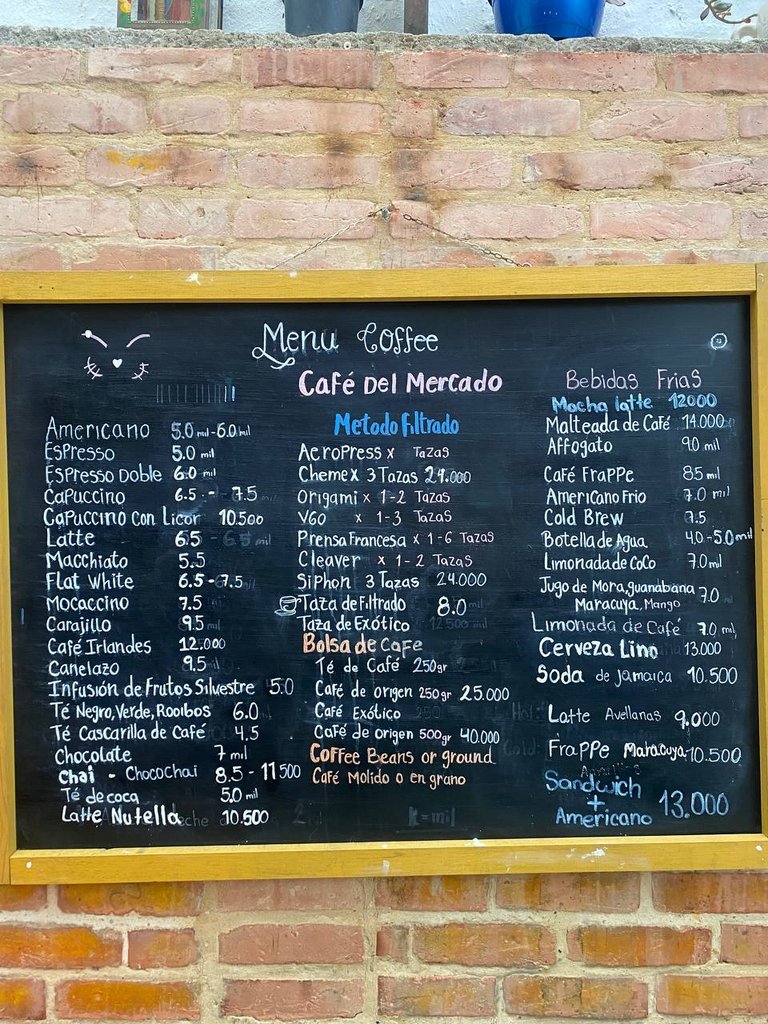 Menu Coffee
Café Del Mercado
Americano 5.0 mil - 6.0 mil
Espresso 5.0 mil
Espresso Doble 6.0 mil
Capuccino 6.5 - 7.5
Capuccino con Licor 10.500
Latte 6.5 - 6.5 mil
Macchiato 5.5
Flat White 6.5 - 7.5
Mocaccino 7.5
Carajillo 9.5 mil
Café Irlandes 12.000
Canelazo 9.5 mil
Infusión de Frutos Silvestre 5.0
Té Negro, Verde, Rooibos 6.0
Té Cascarilla de Café 4.5
Chocolate 7 mil
Chai - Chocochai 8.5 - 11500
Té de coca 5.0 mil
Latte Nutella 10.500
Metodo Filtrado
Aeropress x Tazas
Chemex 3 Tazas 24.000
Origami x 1-2 Tazas
V60 x 1-3 Tazas
Prensa Francesa x 1-6 Tazas
Cleaver x 1-2 Tazas
Siphon 3 Tazas 24.000
Taza de Filtrado 8.0
Taza de Exótico 12.500 mil
Bolsa de Cafe
Té de Café 250gr
Café de origen 250gr 25.000
Café Exótico 250
Café de origen 500gr 40.000
Coffee Beans or ground
Café Molido o en grano
k=mil
Bebidas Frias
Mocha latte 12000
Malteada de Café 14.000
Affogato 9.0 mil
Café Frappe 8.5 mil
Americano Frio 7.0 mil
Cold Brew 7.5
Botella de Agua 4.0 - 5.0 mil
Limonada de Coco 7.0 mil
Jugo de Mora, guanabana 7.0
Maracuya, Mango
Limonada de Café 7.0 mil
Cerveza Lino 13.000
Soda de jamaica 10.500
Latte Avellanas 9.000
Frappe Maracuya 10.500
Sandwich
+
Americano 13.000